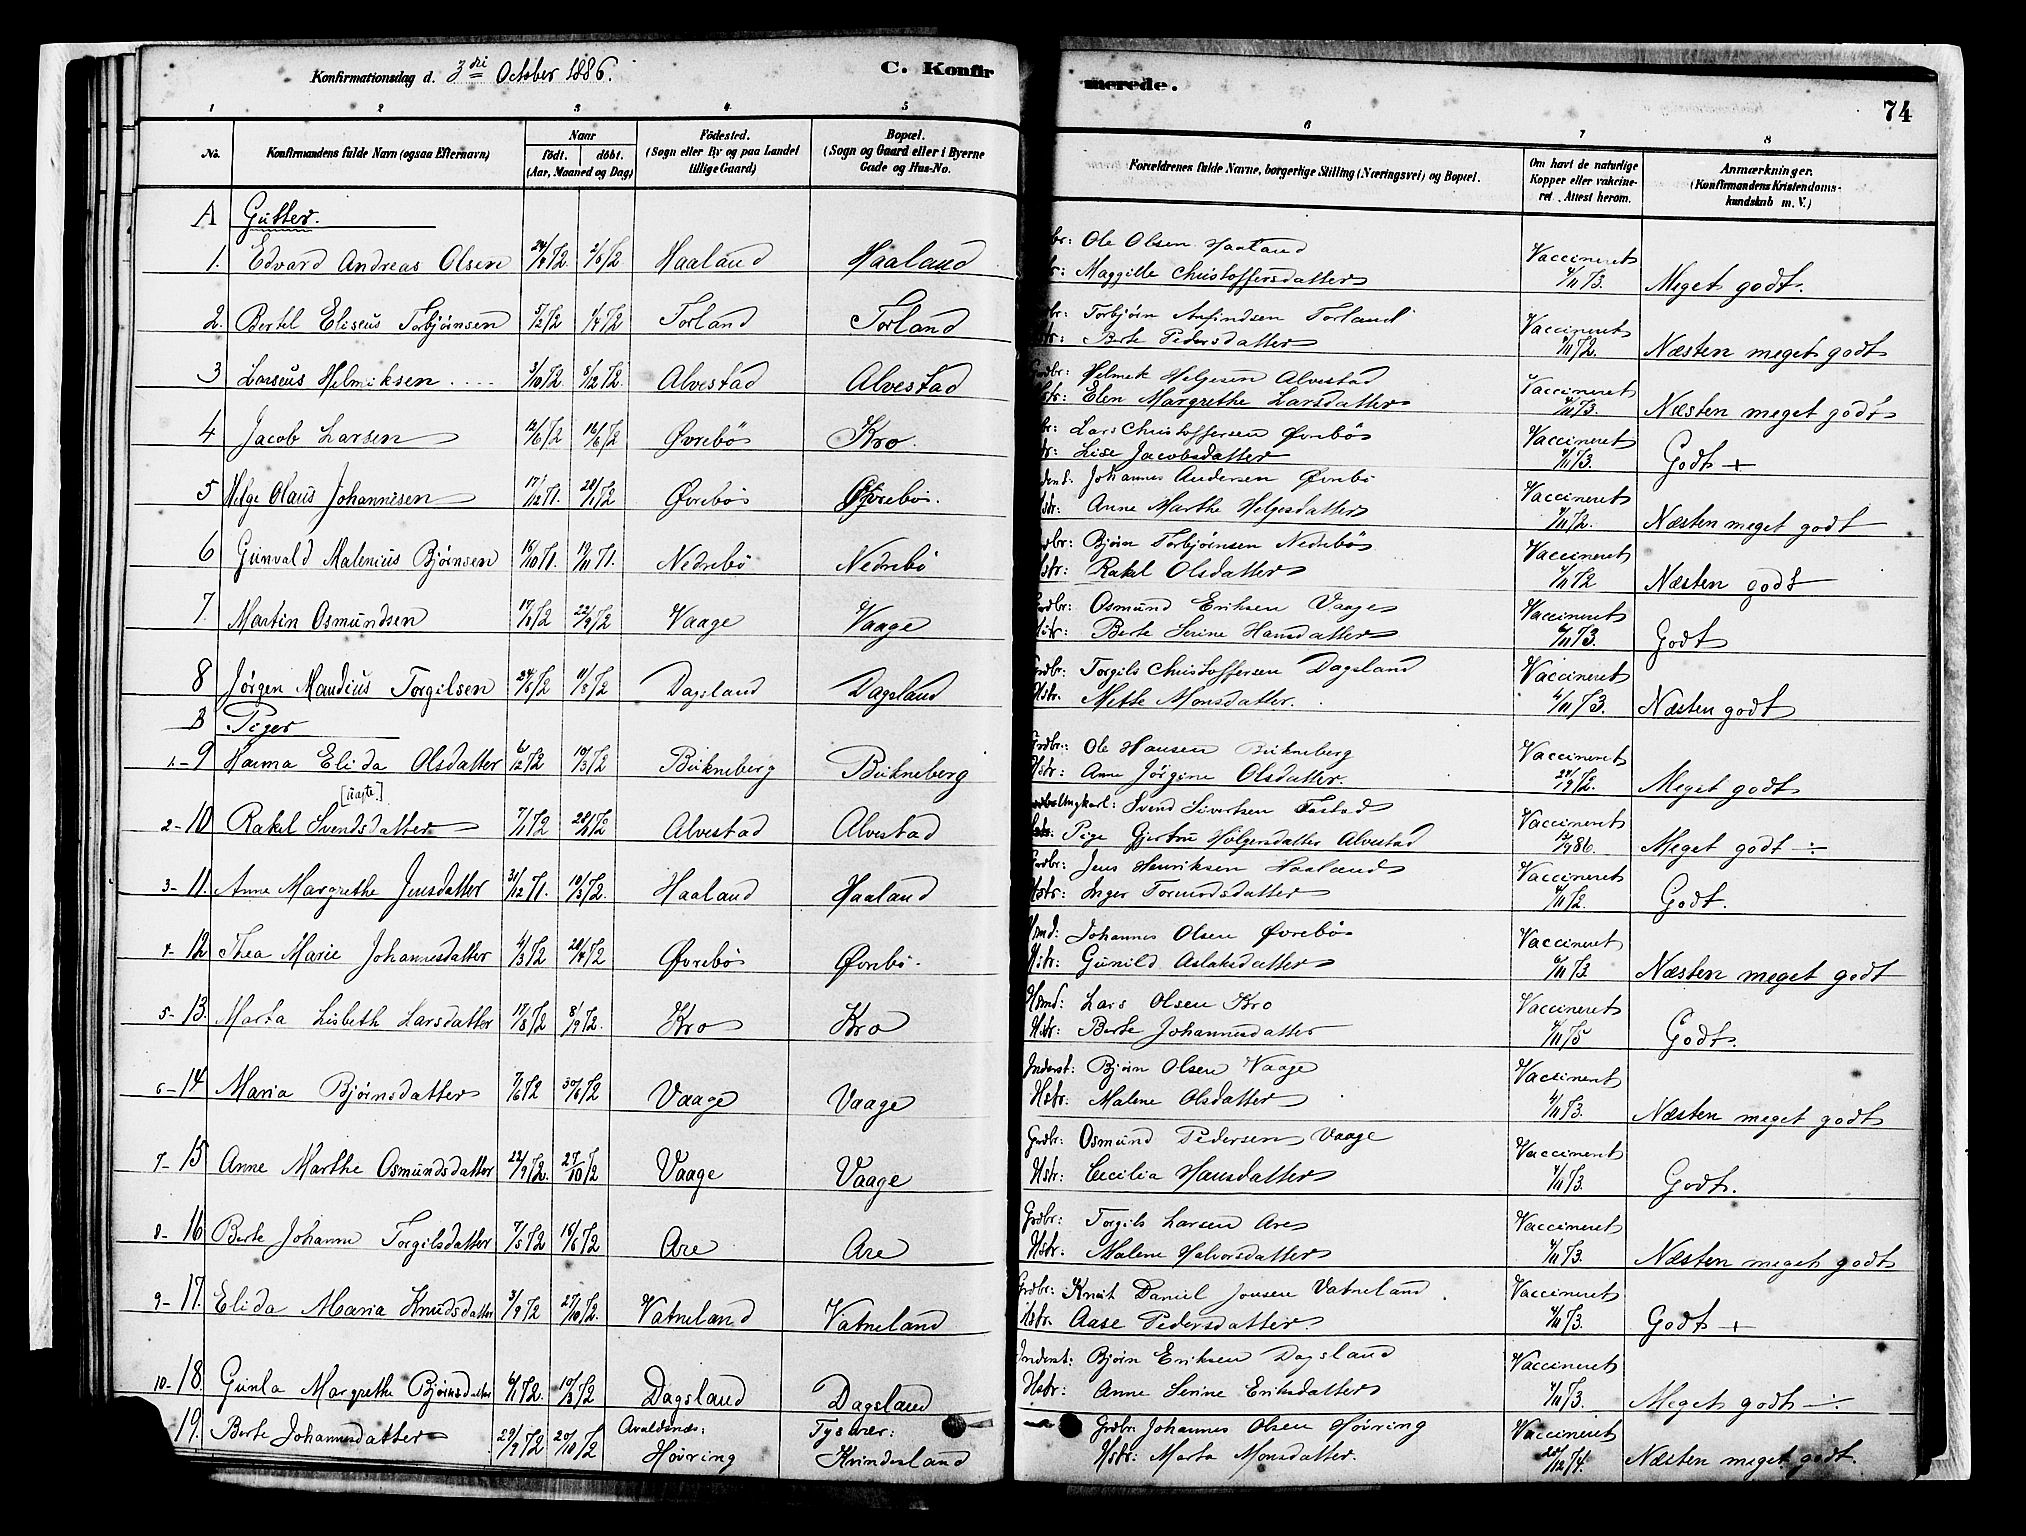 Konfirmationsdag d. 3die October 1886.
C. Konfirmerede.
74
1 2 3 4 5 6 7 8
No. Konfirmandens fulde Navn (ogsaa Efternavn) Naar födt. döbt. (Aar, Maaned og Dag) Födested. (Sogn eller By og paa Landet tillige Gaard) Bopæl. (Sogn og Gaard eller i Byerne Gade og Hus-No. Forældrenes fulde Navne, borgerlige Stilling (Næringsvei) og Bopæl. Om havt de naturlige Kopper eller vakcineret. Attest herom. Anmærkninger. (Konfirmandens Kristendomskundskab m. V.)
A Gutter.
1. Edvard Andreas Olsen 2/6 72 Haaland Haaland Ole Olsen Haaland Vaccineret
Maggille Christoffersdatter 4/11 73. Meget godt.
2. Bertel Eliseus Torbjørnsen 5/2 72 1/4 72 Torland Torland Torbjørn Torland Vaccineret
Berte Pedersdatter 72. Næsten meget godt
3 Larseus Helmiksen 3/10 72. 8/12 72. Alvestad Alvestad Helmik Helgesen Alvestad Vaccineret
Elen Margrethe Larsdatter 4/11 73. Næsten meget godt
4 Jacob Larsen 12/6 72 16/6 72 Øvrebö Kro. Lars Christoffersen Øvrebö Vaccineret
Lise Jacobsdatter 4/11 73. Godt +
5 Helge Olaus Johannesen 17/12 71. 28/1 72 Øvrebö Øvrebö. Johannes Andersen Øvrebö Vaccineret
Anne Marthe Helgesdatter 4/11 72. Næsten meget godt
6 Gunvald Malenius Bjørnsen 16/10 71. 19/11 71. Nedrebö Nedrebö Bjørn Torbjørnsen Nedrebö Vaccineret
Rakel Olsdatter 4/11 72 Næsten godt
7. Martin Osmundsen 17/8 72 22/9 72 Vaage Vaage Grdbr: Osmund Eriksen Vaage Vaccineret
Hstr: Berte Serine Hansdatter 6/11 73. Godt
8 Jørgen Maudius Torgilsen 72 72 Dagsland Dagsland Grdbr: Torgils Christoffersen Dagsland Vaccineret
Hstr. Mette Monsdatter. 4/11 73. Næsten godt
B Piger
1-9 Hanna Elida Olsdatter 6/2 72 10/3 72 Bukneberg Bukneberg Grdbr: Ole Hansen Bukneberg Vaccineret
Hstr: Anne Jørgine Olsdatter. 24/9 72. Meget godt
[uægte.]
2-10 Rakel Svendsdatter 7/1 72 72 Alvestad Alvestad Ungkarl: Svend Sivertsen Vaccineret
Pige Gjertru Holgersdatter Alvestad 86. Meget godt ÷
3-11. Anne Margrethe Jensdatter 31/12 71. 10/3 72. Haaland Haaland Grdbr: Jens Henriksen Haaland Vaccineret
Hstr: Inger Tormodsdatter 4/11 72. Godt.
4-12 Thea Marie Johannesdatter 4/3 72 28/4 72 Øvrebö Øvrebö. Hsmd: Johannes Olsen Øvrebö Vaccineret
Hstr: Gunild Aslaksdatter 6/11 73. Næsten meget godt
5-13. Marta Lisbeth Larsdatter 17/8 72 8/9 72. Kro Kro Hsmd: Lars Olsen Kro Vaccineret
Hstr: Berte Johannesdatter 4/11 75 Godt.
6-14 Maria Bjørnsdatter 7/6 72 30/6 72 Vaage Vaage Inderst: Bjørn Olsen Vaage Vaccineret
Hstr: Malene Olsdatter 4/11 73. Næsten meget godt
7-15 Anne Marthe Osmundsdatter 22/9 72. 27/10 72 Vaage Vaage Grdbr: Osmund Pedersen Vaage Vaccineret
Hstr: Cecilia Hansdatter 4/11 73. Godt.
8-16 Berte Johanne Torgilsdatter 7/5 72 16/6 72 Are Are Grdbr: Torgils Larsen Are Vaccineret
Hstr: Malene Halvorsdatter 4/11 73. Næsten meget godt
9-17. Elida Maria Knudsdatter 3/9 72 27/10 72. Vatneland Vatneland Grdbr: Knut Daniel Jonsen Vatneland Vaccineret
Hstr. Aase Pedersdatter. 4/11 73. Godt +
10-18. Gunla Margrethe Bjørnsdatter 6/1 72. 10/3 72 Dagsland Dagsland Inderst: Bjørn Eriksen Dagsland Vaccineret
Hstr: Anne Serine Eriksdatter 4/11 73. Meget godt ÷
19. Berte Johannesdatter 29/9 72 20/10 72 Avaldsnæs: Høvring Tysvær: Kvindesland Grdbr: Johannes Olsen Høvring Vaccineret
Hstr: Marta Monsdatter. 28/12 74. Næsten meget godt.